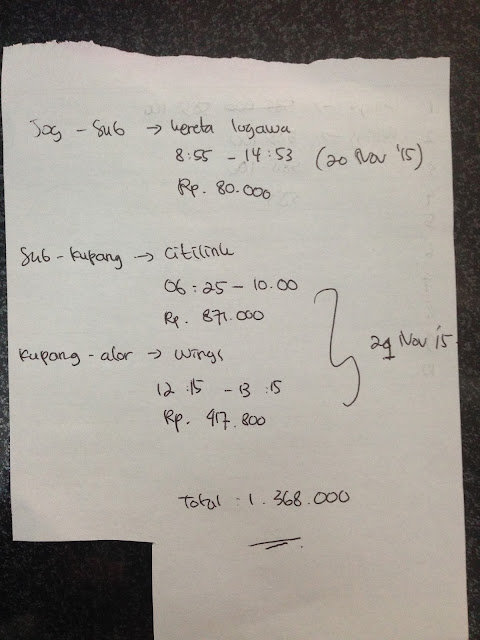 Jog - Sub → kereta logawa
8:55 - 14:53 (20 Nov '15)
Rp. 80.000
Sub - Kupang → Citilink
06:25 - 10.00
Rp. 871.000
Kupang - alor → Wings
12:15 - 13:15
Rp. 417.800
Nov '15
Total : 1.368.000